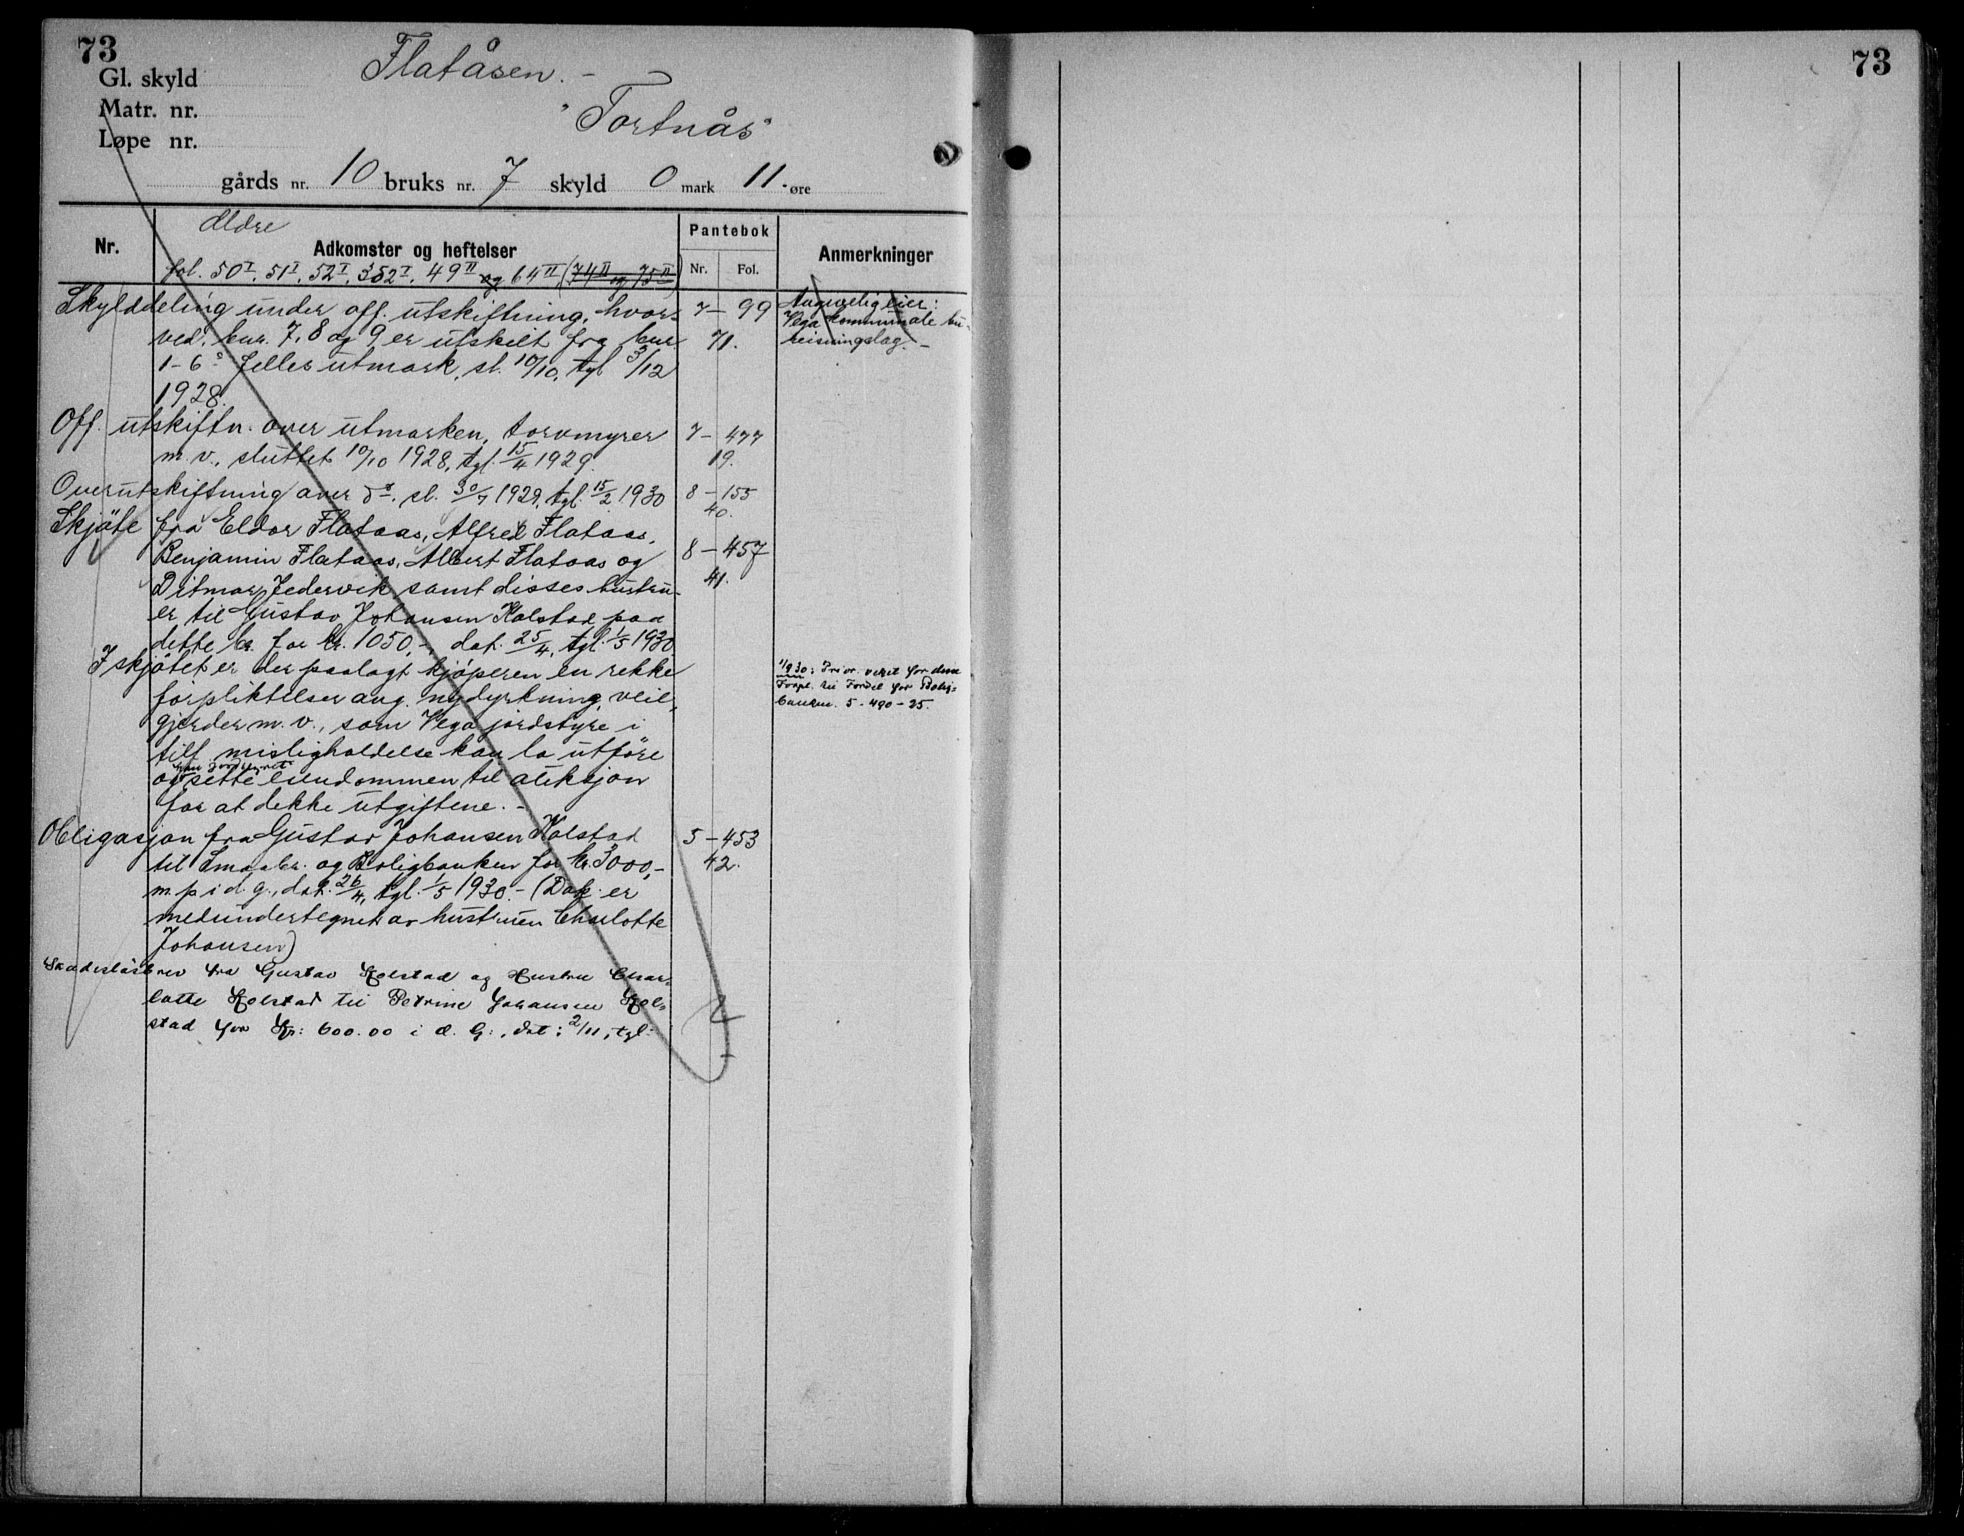 73
Gl. skyld
Flatåsen.-
Matr. nr.
"Tortnås"
Løpe nr.
gårds nr. 10 bruks nr. 7 skyld 0 mark 11. øre
Nr.
Eldre
Adkomster og heftelser
fol. 50 I, 51 I, 52 I, 352 I, 49 II og 64 II (74 II og 75 II)
Pantebok
Nr. Fol.
Anmerkninger
Skylddeling under off. utskiftning, hvor- 7 - 99
ved. bnr. 7, 8 og 9 er utskilt fra bnr. 71.
1-6s felles utmark, sl. 10/10, tgl 3/12
1928.
eier:
Vega kommunale bu-
reisningslag.-
Off. utskiftn. over utmarken, torvmyrer 7 - 477
m. v., sluttet 10/10 1928, tgl. 15/4 1929. 19.
Overutskiftning over do, sl. 30/7 1929, tgl. 15/2 1930 8 - 155
40.
Skjøte fra Eldor Flataas, Alfred Flataas,
Benjamin Flataas, Albert Flataas og 8 - 457
Ditmar Jedervik samt disses hustru- 41.
er til Gustav Johansen Kolstad paa
dette br. for kr. 1050,-, dat. 25/4, tgl. 1/5 1930
I skjøtet er der paalagt kjøperen en rekke
forpliktelser ang. nydyrkning, veil,
gjerder m. v., som Vega jordstyre i
tilf. misligholdelse kan la utføre
og sette eiendommen til auksjon
for at dekke utgiftene.-
1930: Prior. veket for denne
Forpl. til Fordel for Bolig-
banken. 5 - 490 - 25.
Obligasjon fra Gustav Johansen Kolstad 5 - 453
til Smaabr. og Boligbanken for kr. 3000,- 42.
m. p i d. g., dat. 26/4, tgl. 1/5 1930.- (Dok. er
medundertegnet av hustruen Charlotte
Johansen)
Skadesløsbrev fra Gustav Kolstad og Hustru Char-
lotte Kolstad til Petrine Johansen Kol-
stad for Kr: 600.00 i d. G:, dat: 2/11, tgl:
73